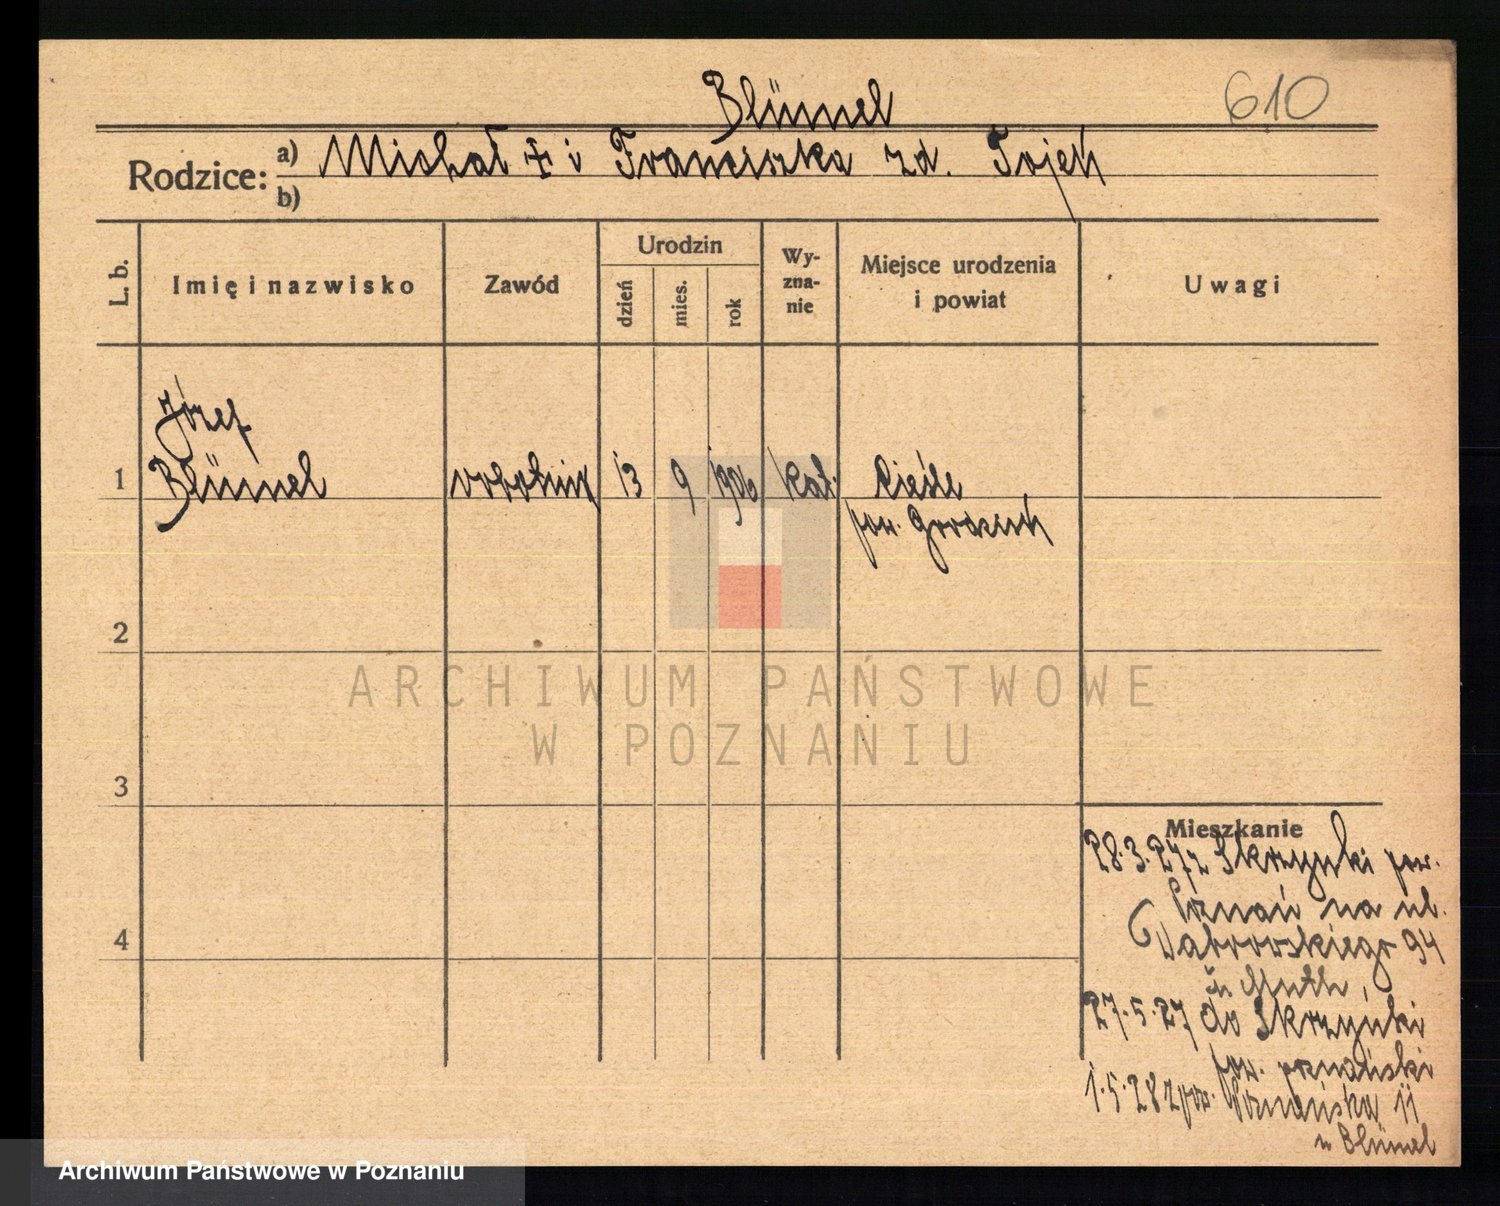 610
Blümel
Rodzice: a) Michał + i Franciszka zd. Tojek
b)
L. b.
Imię i nazwisko
Zawód
Urodzin
dzień
mies.
rok
Wy-
zna-
nie
Miejsce urodzenia
i powiat
Uwagi
Józef
1 Blümel robotnik 13 9 1906 kat. Cieśle
pow. Grodzisk
2
ARCHIWUM PAŃSTWOWE
W POZNANIU
3
Mieszkanie
28.3.27 z Skrzynki pow.
4
Poznań na ul.
Dąbrowskiego 94
u
27.5.27 do Skrzynki
pow. poznański
1.5.28 z pow. Poznańska 11
u Blümel
Archiwum Państwowe w Poznaniu